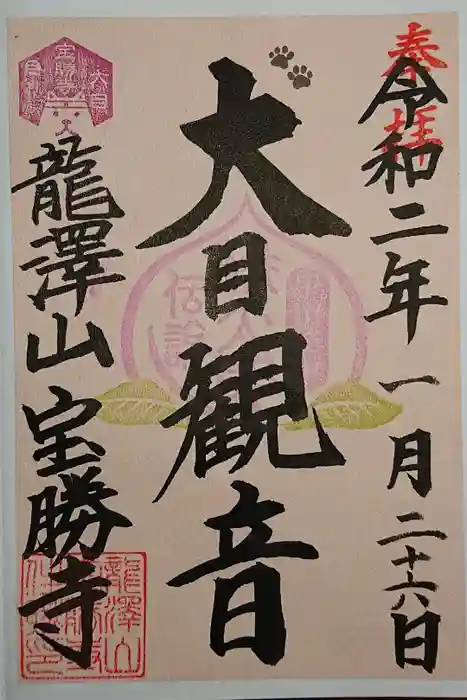 奉拝
令和二年一月二十六日
犬目観音
伝説
龍澤山 宝勝寺
龍澤山